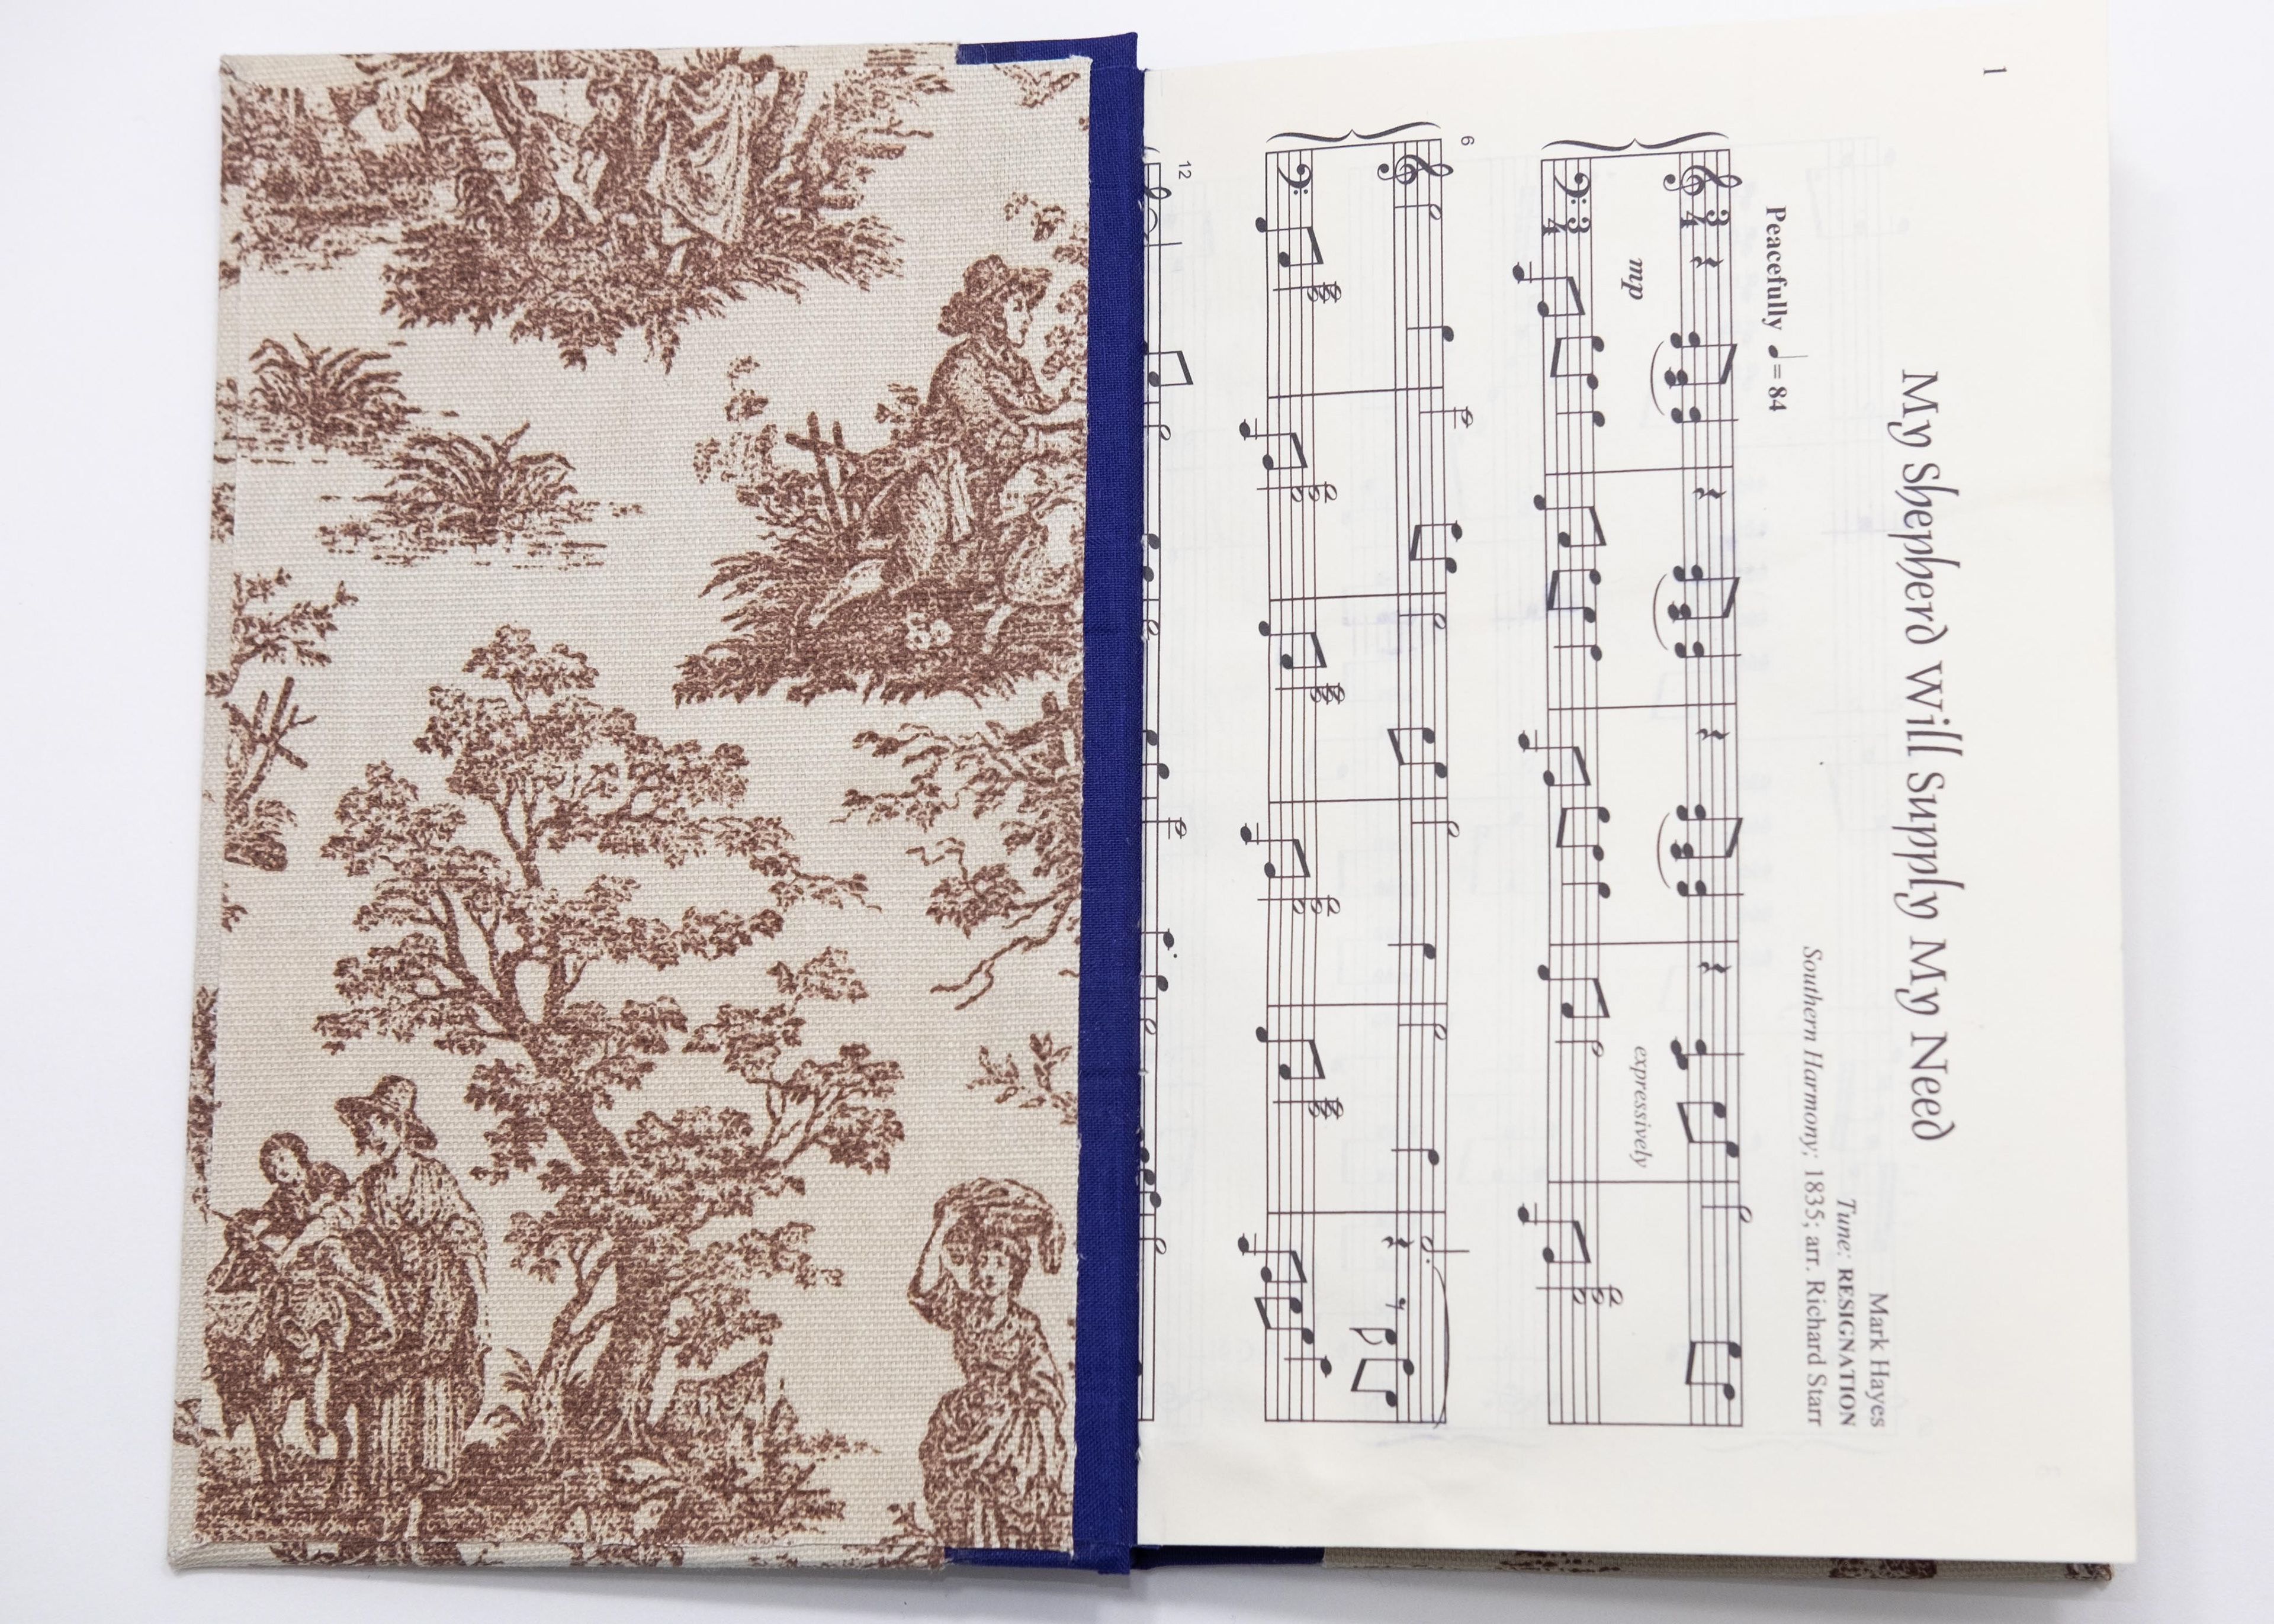 1
My Shepherd Will Supply My Need
Mark Hayes
Tune: RESIGNATION
Southern Harmony; 1835; arr. Richard Starr
Peacefully ♩ = 84
3 4
3 4
mp
expressively
6
12